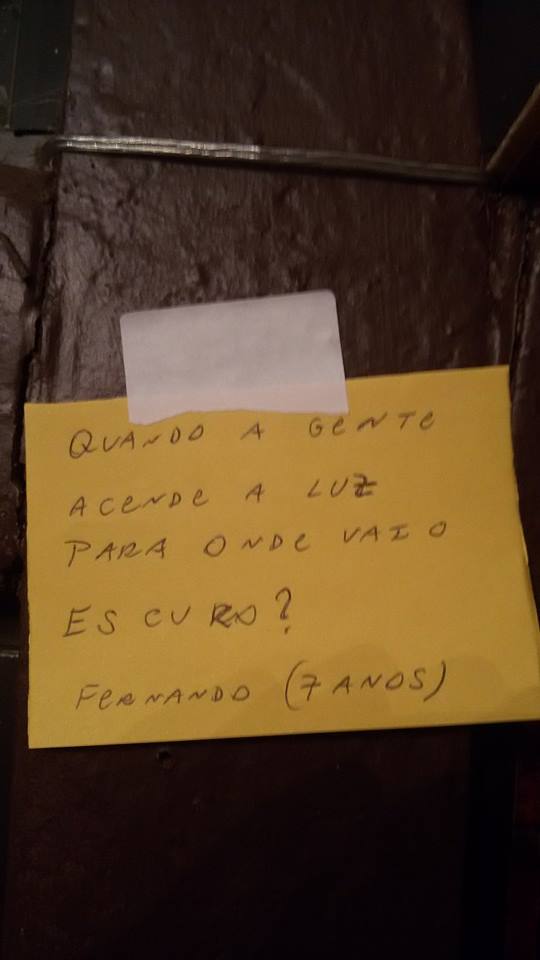 QUANDO A GENTE
ACENDE A LUZ
PARA ONDE VAI O
ESCURO?
FERNANDO (7 ANOS)